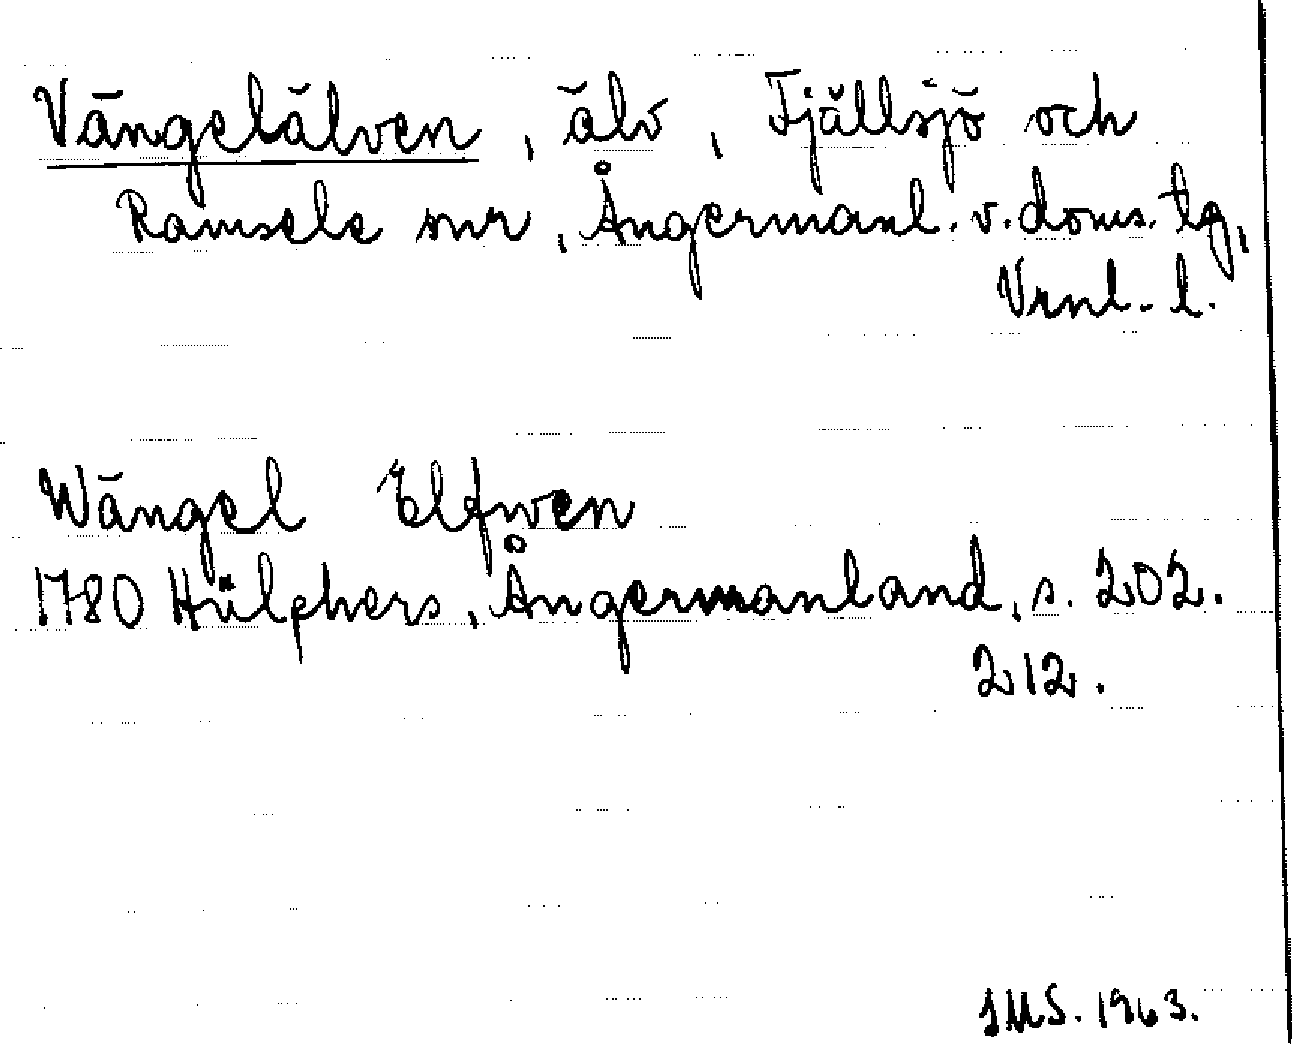 Vängelälven, älv, Fjällsjö och
Ramsele snr, Ångermanl. v. doms. tg,
Vrnl. l.
Wängel Elfwen
1780 Hülphers, Ångermanland, s. 202.
212.
IMS. 1963.